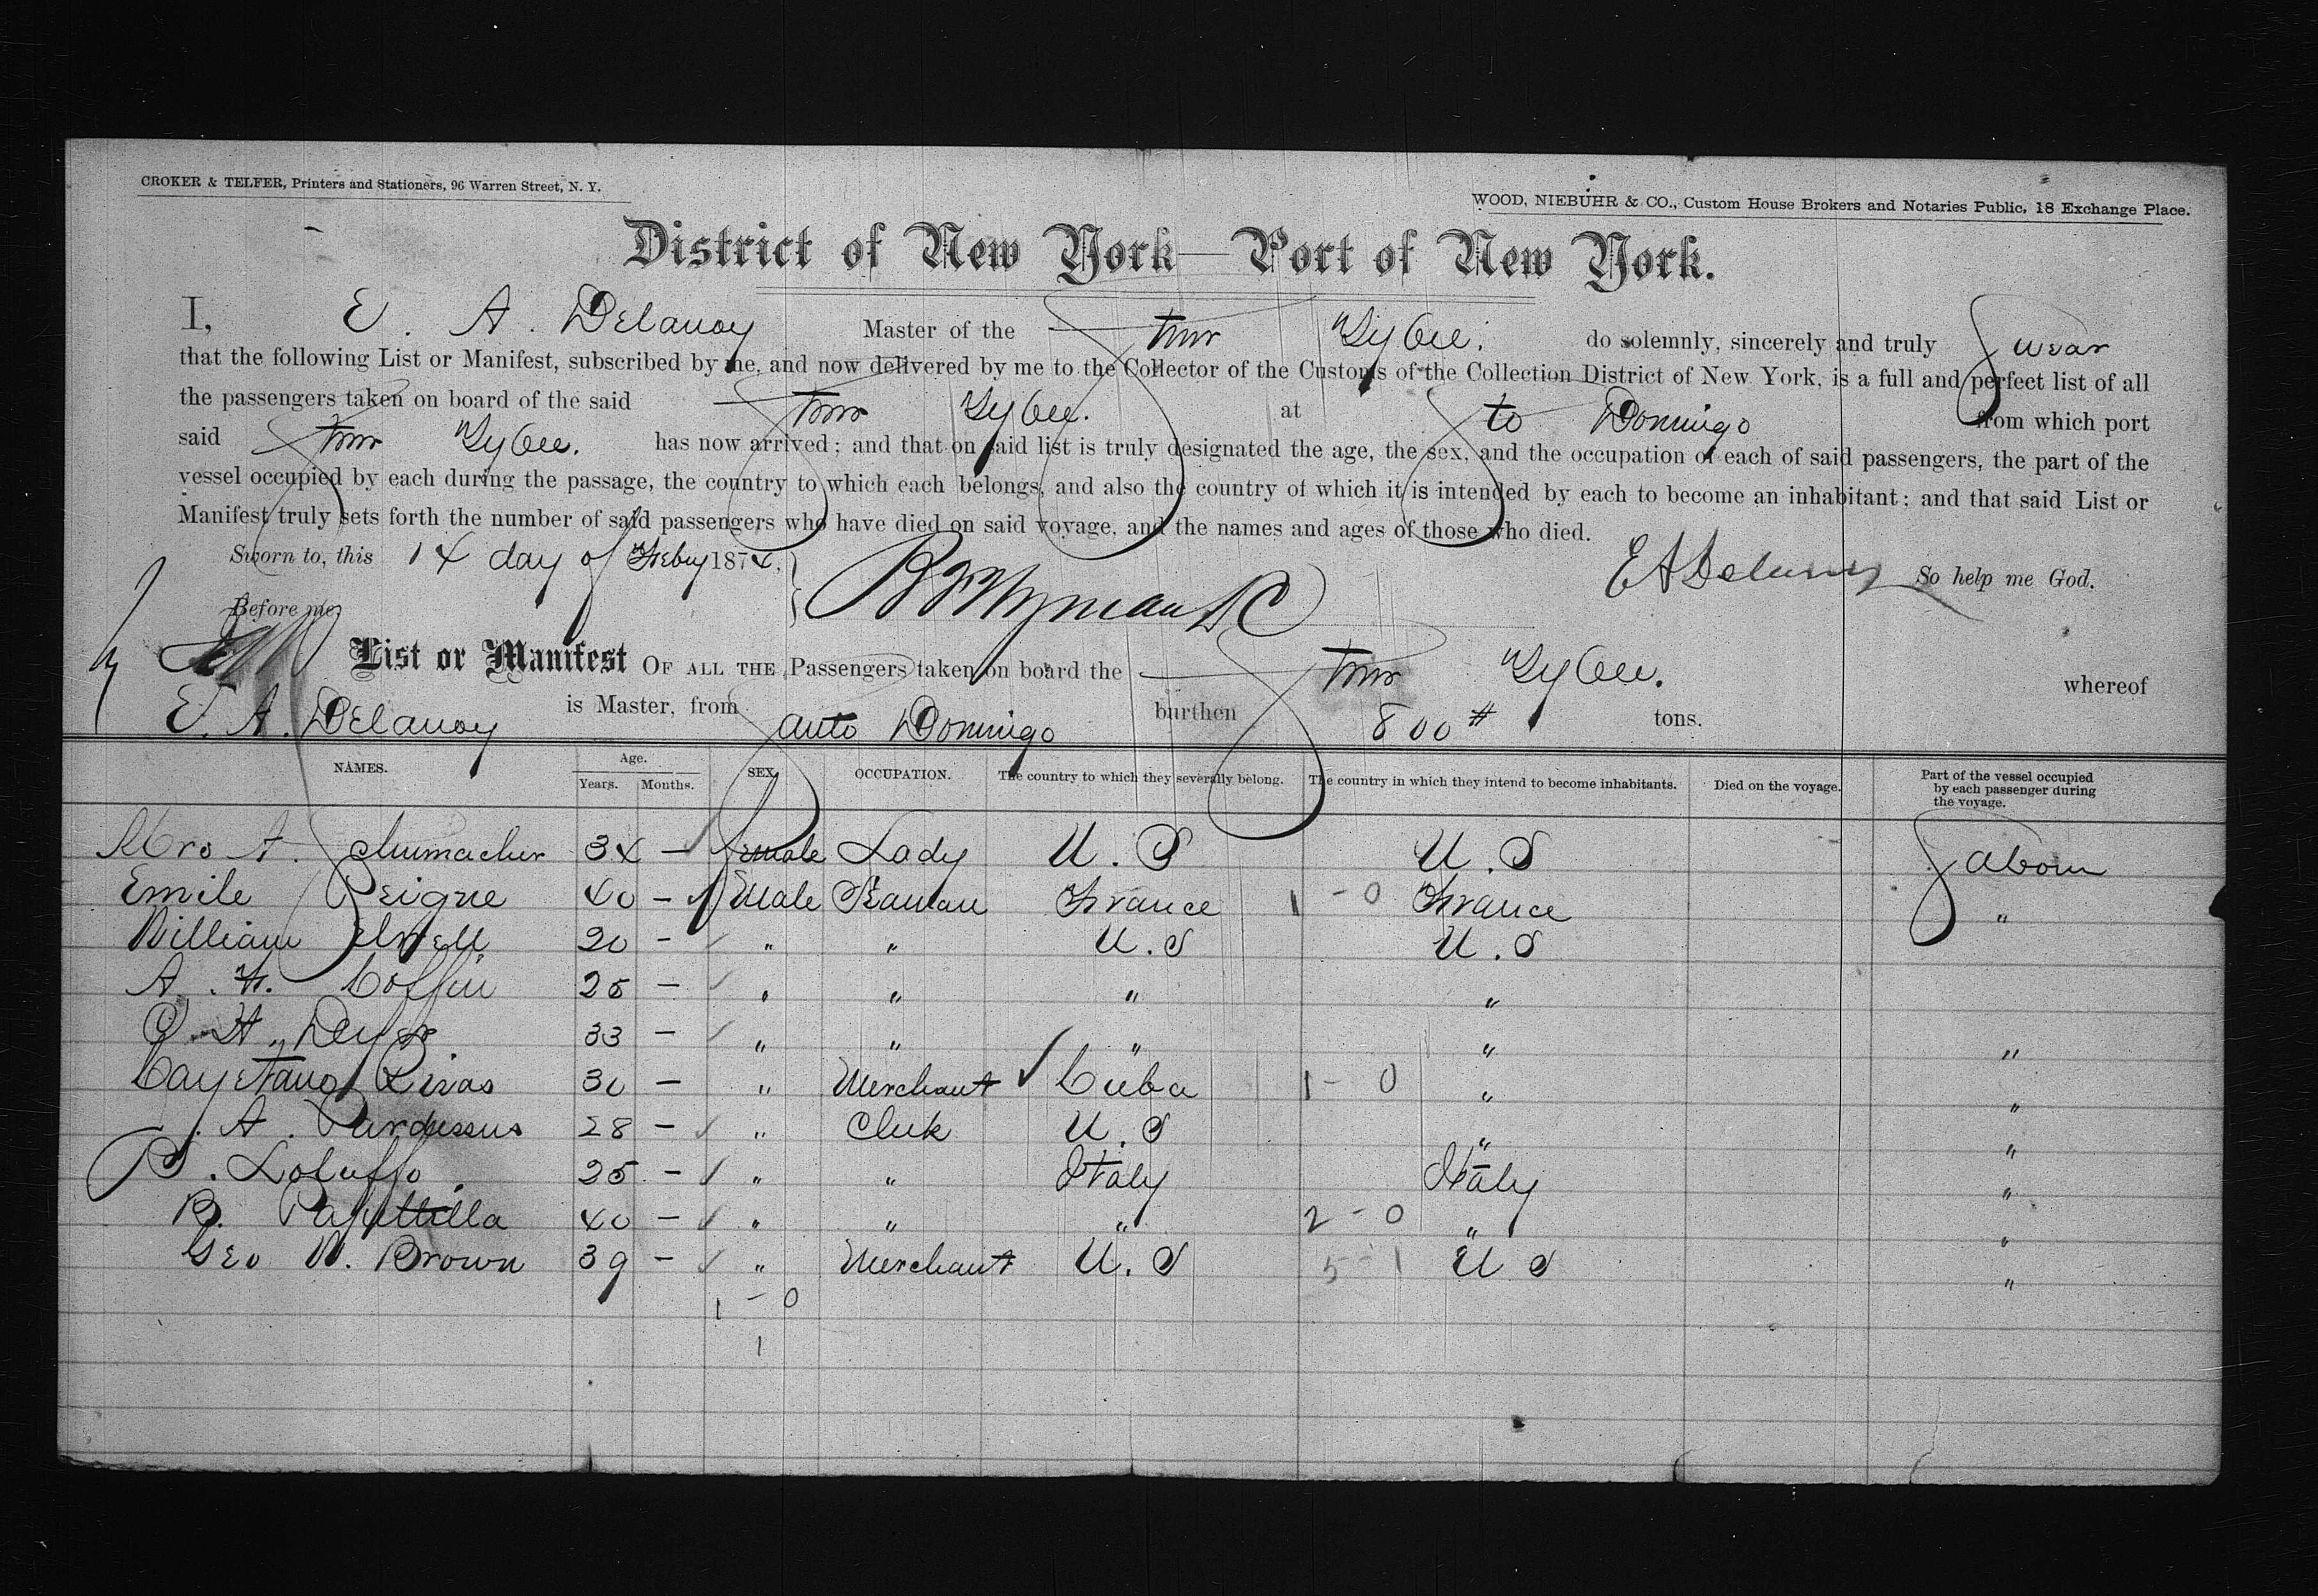 CROKER & TELFER, Printers and Stationers, 96 Warren Street, N. Y.
WOOD, NIEBUHR & CO., Custom House Brokers and Notaries Public, 18 Exchange Place.
District of New York—Port of New York.
I, E. A. Delanoy Master of the Stmr Tybee. do solemnly, sincerely and truly Swear
that the following List or Manifest, subscribed by me, and now delivered by me to the Collector of the Customs of the Collection District of New York, is a full and perfect list of all
the passengers taken on board of the said Stmr Tybee. at Sto Domingo from which port
said Stmr Tybee. has now arrived; and that on said list is truly designated the age, the sex, and the occupation of each of said passengers, the part of the
vessel occupied by each during the passage, the country to which each belongs, and also the country of which it is intended by each to become an inhabitant; and that said List or
Manifest truly sets forth the number of said passengers who have died on said voyage, and the names and ages of those who died.
Sworn to, this 14 day of Feby 1874. EADelanoy So help me God.
Before me
List or Manifest OF ALL THE Passengers taken on board the Stmr Tybee. whereof
E. A. Delanoy is Master, from Santo Domingo burthen 800 # tons.
NAMES. Age. Years. Months. SEX. OCCUPATION. The country to which they severally belong. The country in which they intend to become inhabitants. Died on the voyage. Part of the vessel occupied by each passenger during the voyage.
Mrs A. Schumacher 34 — female Lady U. S U. S Saboun
Emile Peigne 40 — Male Seaman France 1 - 0 France "
William 20 — " " U. S U. S
A. H. Coffin 25 — " " " "
O. H. Dyer 33 — " " " " "
Cayetano Rivas 30 — " Merchant Cuba 1 - 0 " "
A. Pardessus 28 — " Clerk U. S " "
25 — " " Italy Italy "
B. 40 — " " " 2 - 0 " "
Geo W. Brown 39 — " Merchant U. S 5 - 1 U S "
1 - 0
1